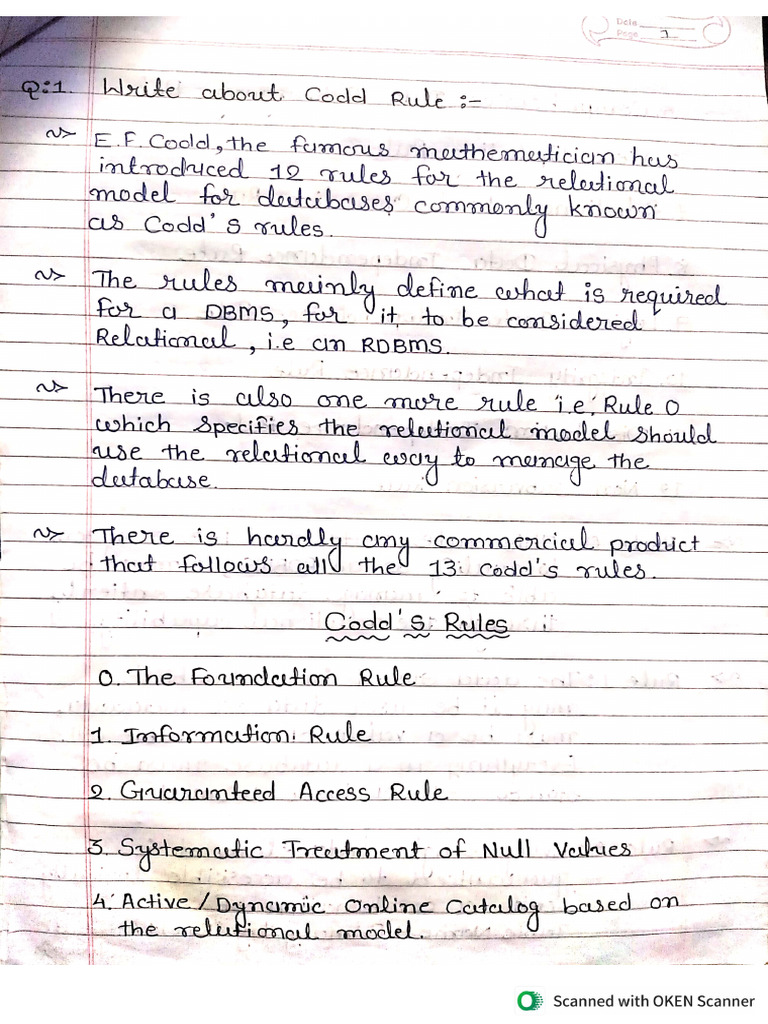 Date
Page 1
Q:1. Write about Codd Rule :-
~> E.F. Codd, the famous mathematician has
introduced 12 rules for the relational
model for databases commonly known
as Codd's rules.
~> The rules mainly define what is required
for a DBMS, for it to be considered
Relational, i.e an RDBMS.
~> There is also one more rule i.e. Rule 0
which specifies the relational model should
use the relational way to manage the
database.
~> There is hardly any commercial product
that follows all the 13 Codd's rules.
Codd's Rules
0. The Foundation Rule
1. Information Rule
2. Guaranteed Access Rule
3. Systematic Treatment of Null Values
4. Active / Dynamic Online Catalog based on
the relational model.
Scanned with OKEN Scanner